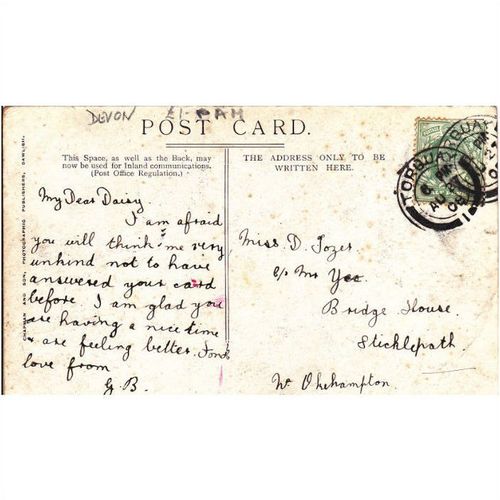 DEVON
POST CARD.
This Space, as well as the Back, may
now be used for Inland communications.
(Post Office Regulation.)
THE ADDRESS ONLY TO BE
WRITTEN HERE.
CHAPMAN AND SON, PHOTOGRAPHIC PUBLISHERS, DAWLISH.
My Dear Daisy
I am afraid
you will think me very
unkind not to have
answered your card
before. I am glad you
are having a nice time
& are feeling better. Fond
love from
G. B.
Miss D. Tozer
c/o Mrs
Bridge House.
Sticklepath
Nr Okehampton.
TORQUAY